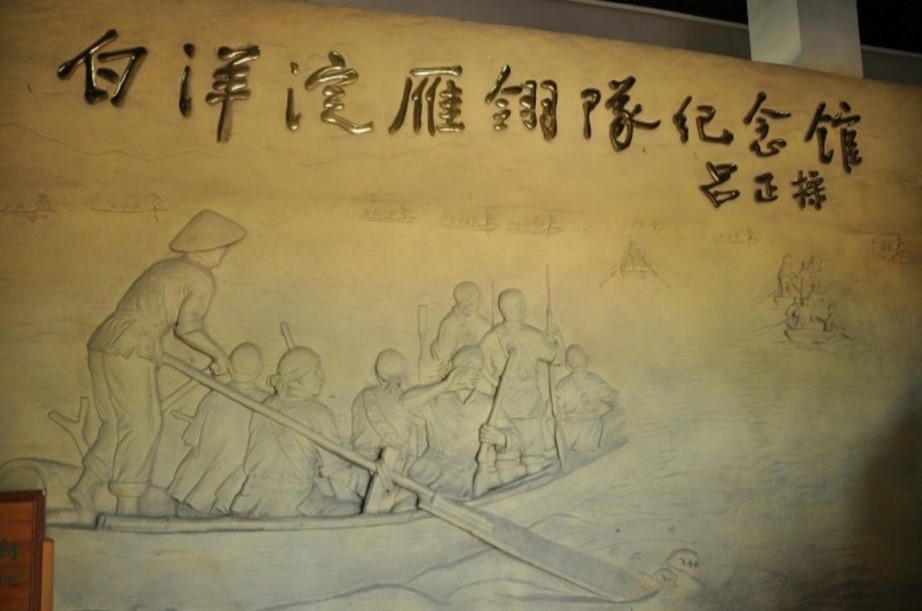 白洋淀雁翎隊纪念馆
吕正操